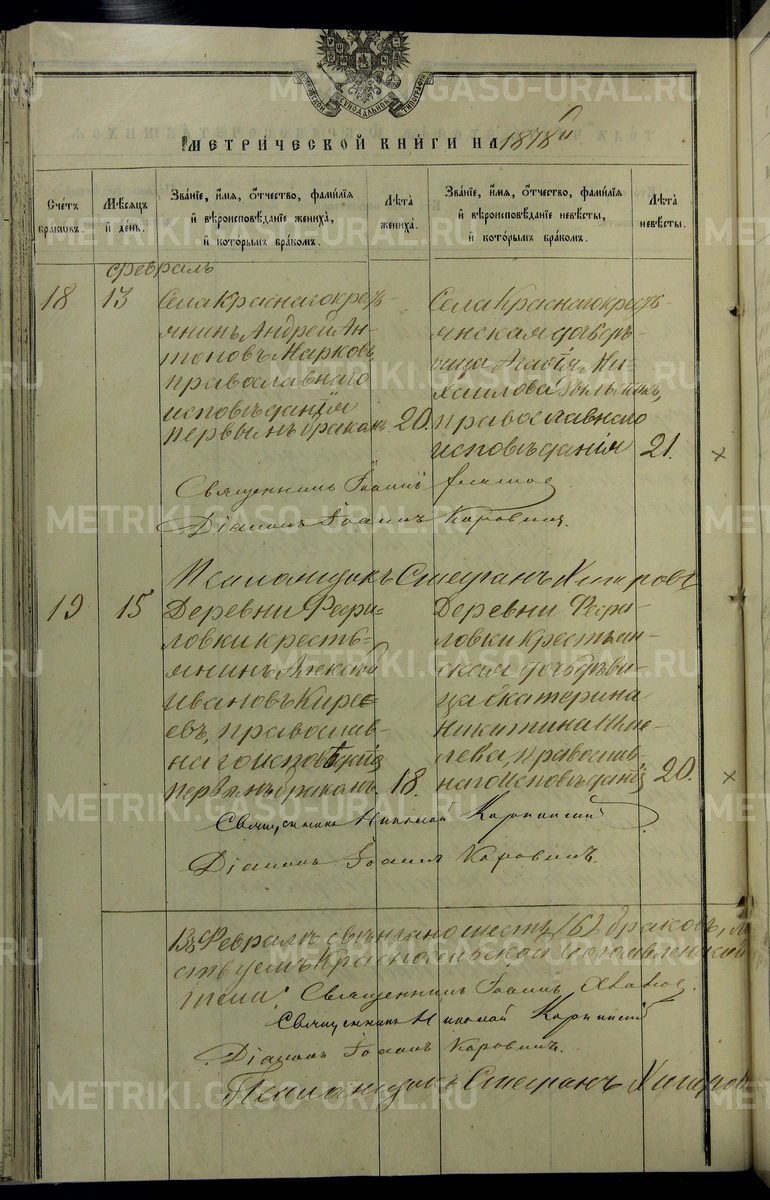 МЕТРИ́ЧЕСКОЙ КНИ́ГИ НА 1878й
Счетъ бра́ковъ.
Мѣ́сяцъ й де́нь.
Зва́нїе, и҆́мя, о҆́тчество, фамилїя й вѣроисповѣ́данїе жениха̀, й кото́рымъ бра́комъ.
Лѣ́та жениха̀.
Зва́нїе, и҆́мя, о҆́тчество, фамилїя й вѣроисповѣ́данїе невѣ́сты, й кото́рымъ бра́комъ.
Лѣ́та невѣ́сты.
Февраль
18 13
Села Краснаго кресть-
янинъ Андрей Ан-
тоновъ Марковъ,
православнаго
исповѣданія
первымъ бракомъ. 20.
Села Краснаго кресть-
янская дочь дѣ-
вица Агафія Ми-
хаилова
православнаго
исповѣданія 21.
Священникъ Іоаннъ
Діаконъ Іоаннъ Коровинъ.
Псаломщикъ Стефанъ Хитровъ
19 15
Деревни
ловки кресть-
янинъ Алексѣй
Ивановъ Кире-
евъ, православ-
наго исповѣданія
первымъ бракомъ. 18.
Деревни
ловки крестьян-
ская дочь дѣви-
ца Екатерина
Никитина
лева, православ-
наго исповѣданія 20.
Священникъ Николай Карпинскій
Діаконъ Іоаннъ Коровинъ.
Въ Февралѣ свѣнчано шесть /6/ браковъ,
ствуемъ Красносельской Богоявленской
Священникъ Іоаннъ
Священникъ Николай Карпинскій
Діаконъ Іоаннъ Коровинъ.
Псаломщикъ Стефанъ Хитровъ
METRIKI.GASO-URAL.RU